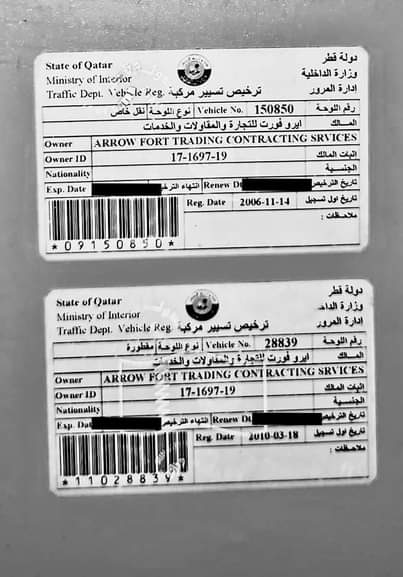 State of Qatar دولة قطر
Ministry of Interior وزارة الداخلية
Traffic Dept. Vehicle Reg. ترخيص تسيير مركبة إدارة المرور
نوع اللوحة نقل خاص Vehicle No. 150850 رقم اللوحة
ايرو فورت للتجارة والمقاولات والخدمات المالك
Owner ARROW FORT TRADING CONTRACTING SRVICES
Owner ID 17-1697-19 إثبات المالك
Nationality الجنسية
Exp. Date انتهاء الترخيص Renew Dt تاريخ الترخيص
Reg. Date 2006-11-14 تاريخ اول تسجيل
ملاحظات :
*09150850*
State of Qatar دولة قطر
Ministry of Interior وزارة الداخ
Traffic Dept. Vehicle Reg. ترخيص تسيير مركبة إدارة المرور
نوع اللوحة مقطورة Vehicle No. 28839 رقم اللوحة
ايرو فورت للتجارة والمقاولات والخدمات المالك
Owner ARROW FORT TRADING CONTRACTING SRVICES
Owner ID 17-1697-19 إثبات المالك
Nationality الجنسية
Exp. Dat انتهاء الترخيص Renew Dt تاريخ الترخيص
Reg. Date 2010-03-18 تاريخ اول تسجيل
ملاحظات :
*11028839*